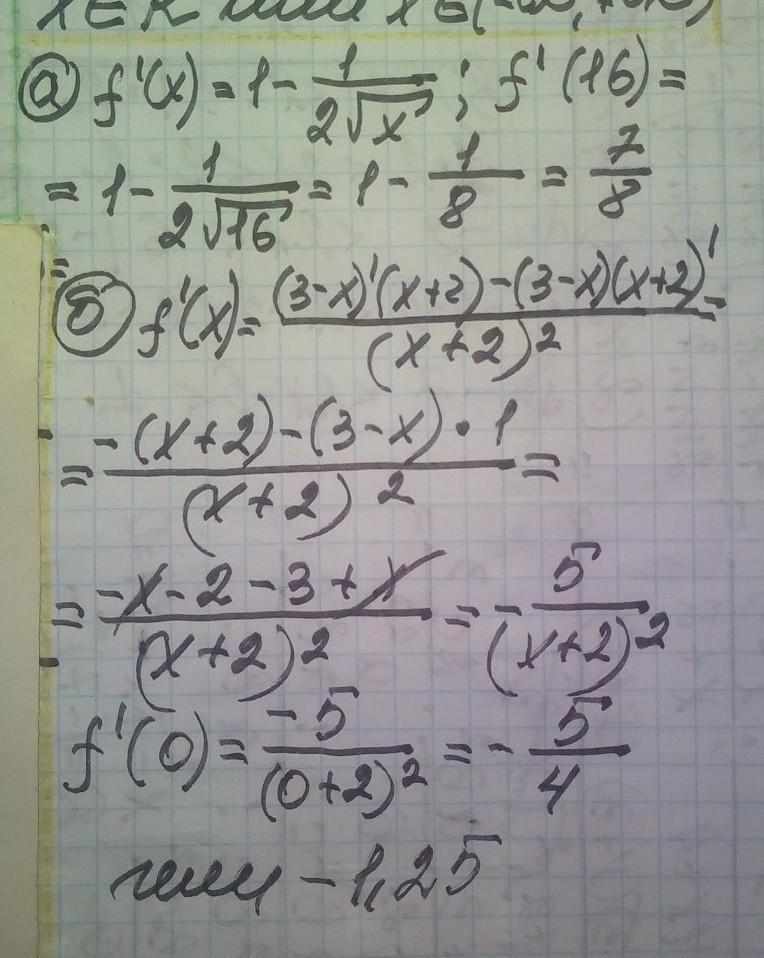 x∈R или x∈(-∞;+∞)
а) f'(x) = 1 - 1/(2√x); f'(16) =
= 1 - 1/(2√16) = 1 - 1/8 = 7/8
б) f'(x) = ((3-x)'(x+2)-(3-x)(x+2)')/(x+2)² =
= (-(x+2)-(3-x)·1)/(x+2)² =
= (-x-2-3+x)/(x+2)² = - 5/(x+2)²
f'(0) = -5/(0+2)² = - 5/4
или -1,25